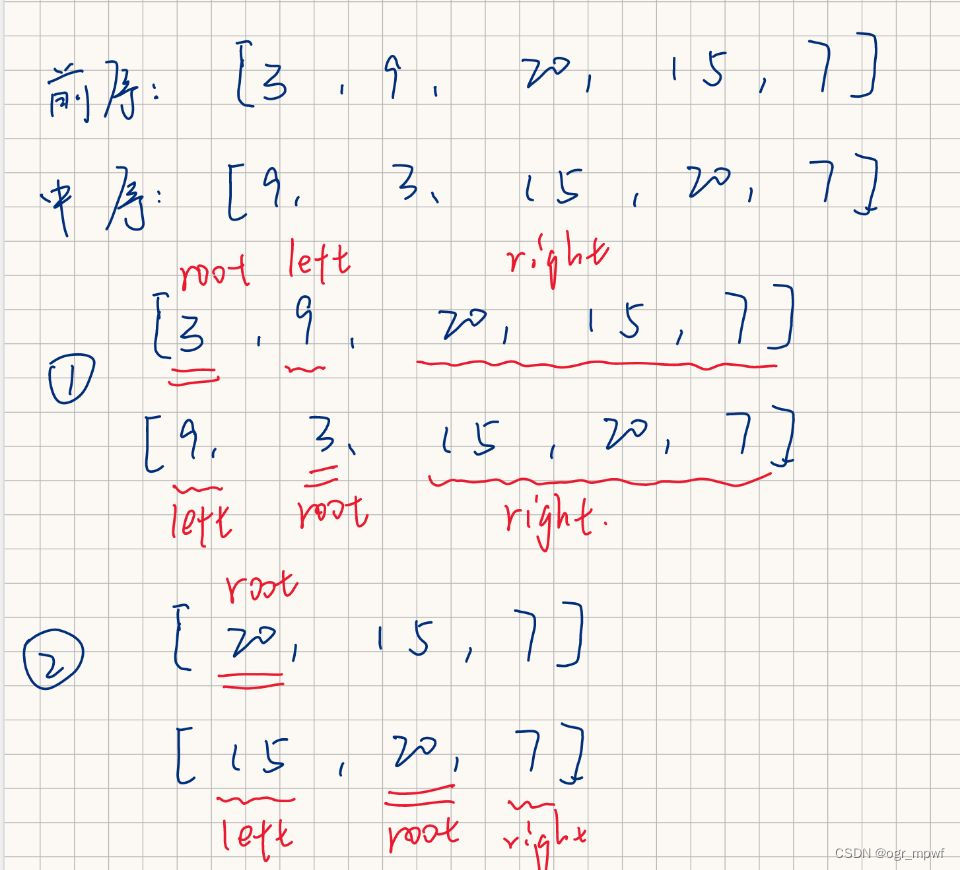 前序: [3, 9, 20, 15, 7]
中序: [9, 3, 15, 20, 7]
root left right
① [3, 9, 20, 15, 7]
[9, 3, 15, 20, 7]
left root right.
root
② [20, 15, 7]
[15, 20, 7]
left root right
CSDN @ogr_mpwf